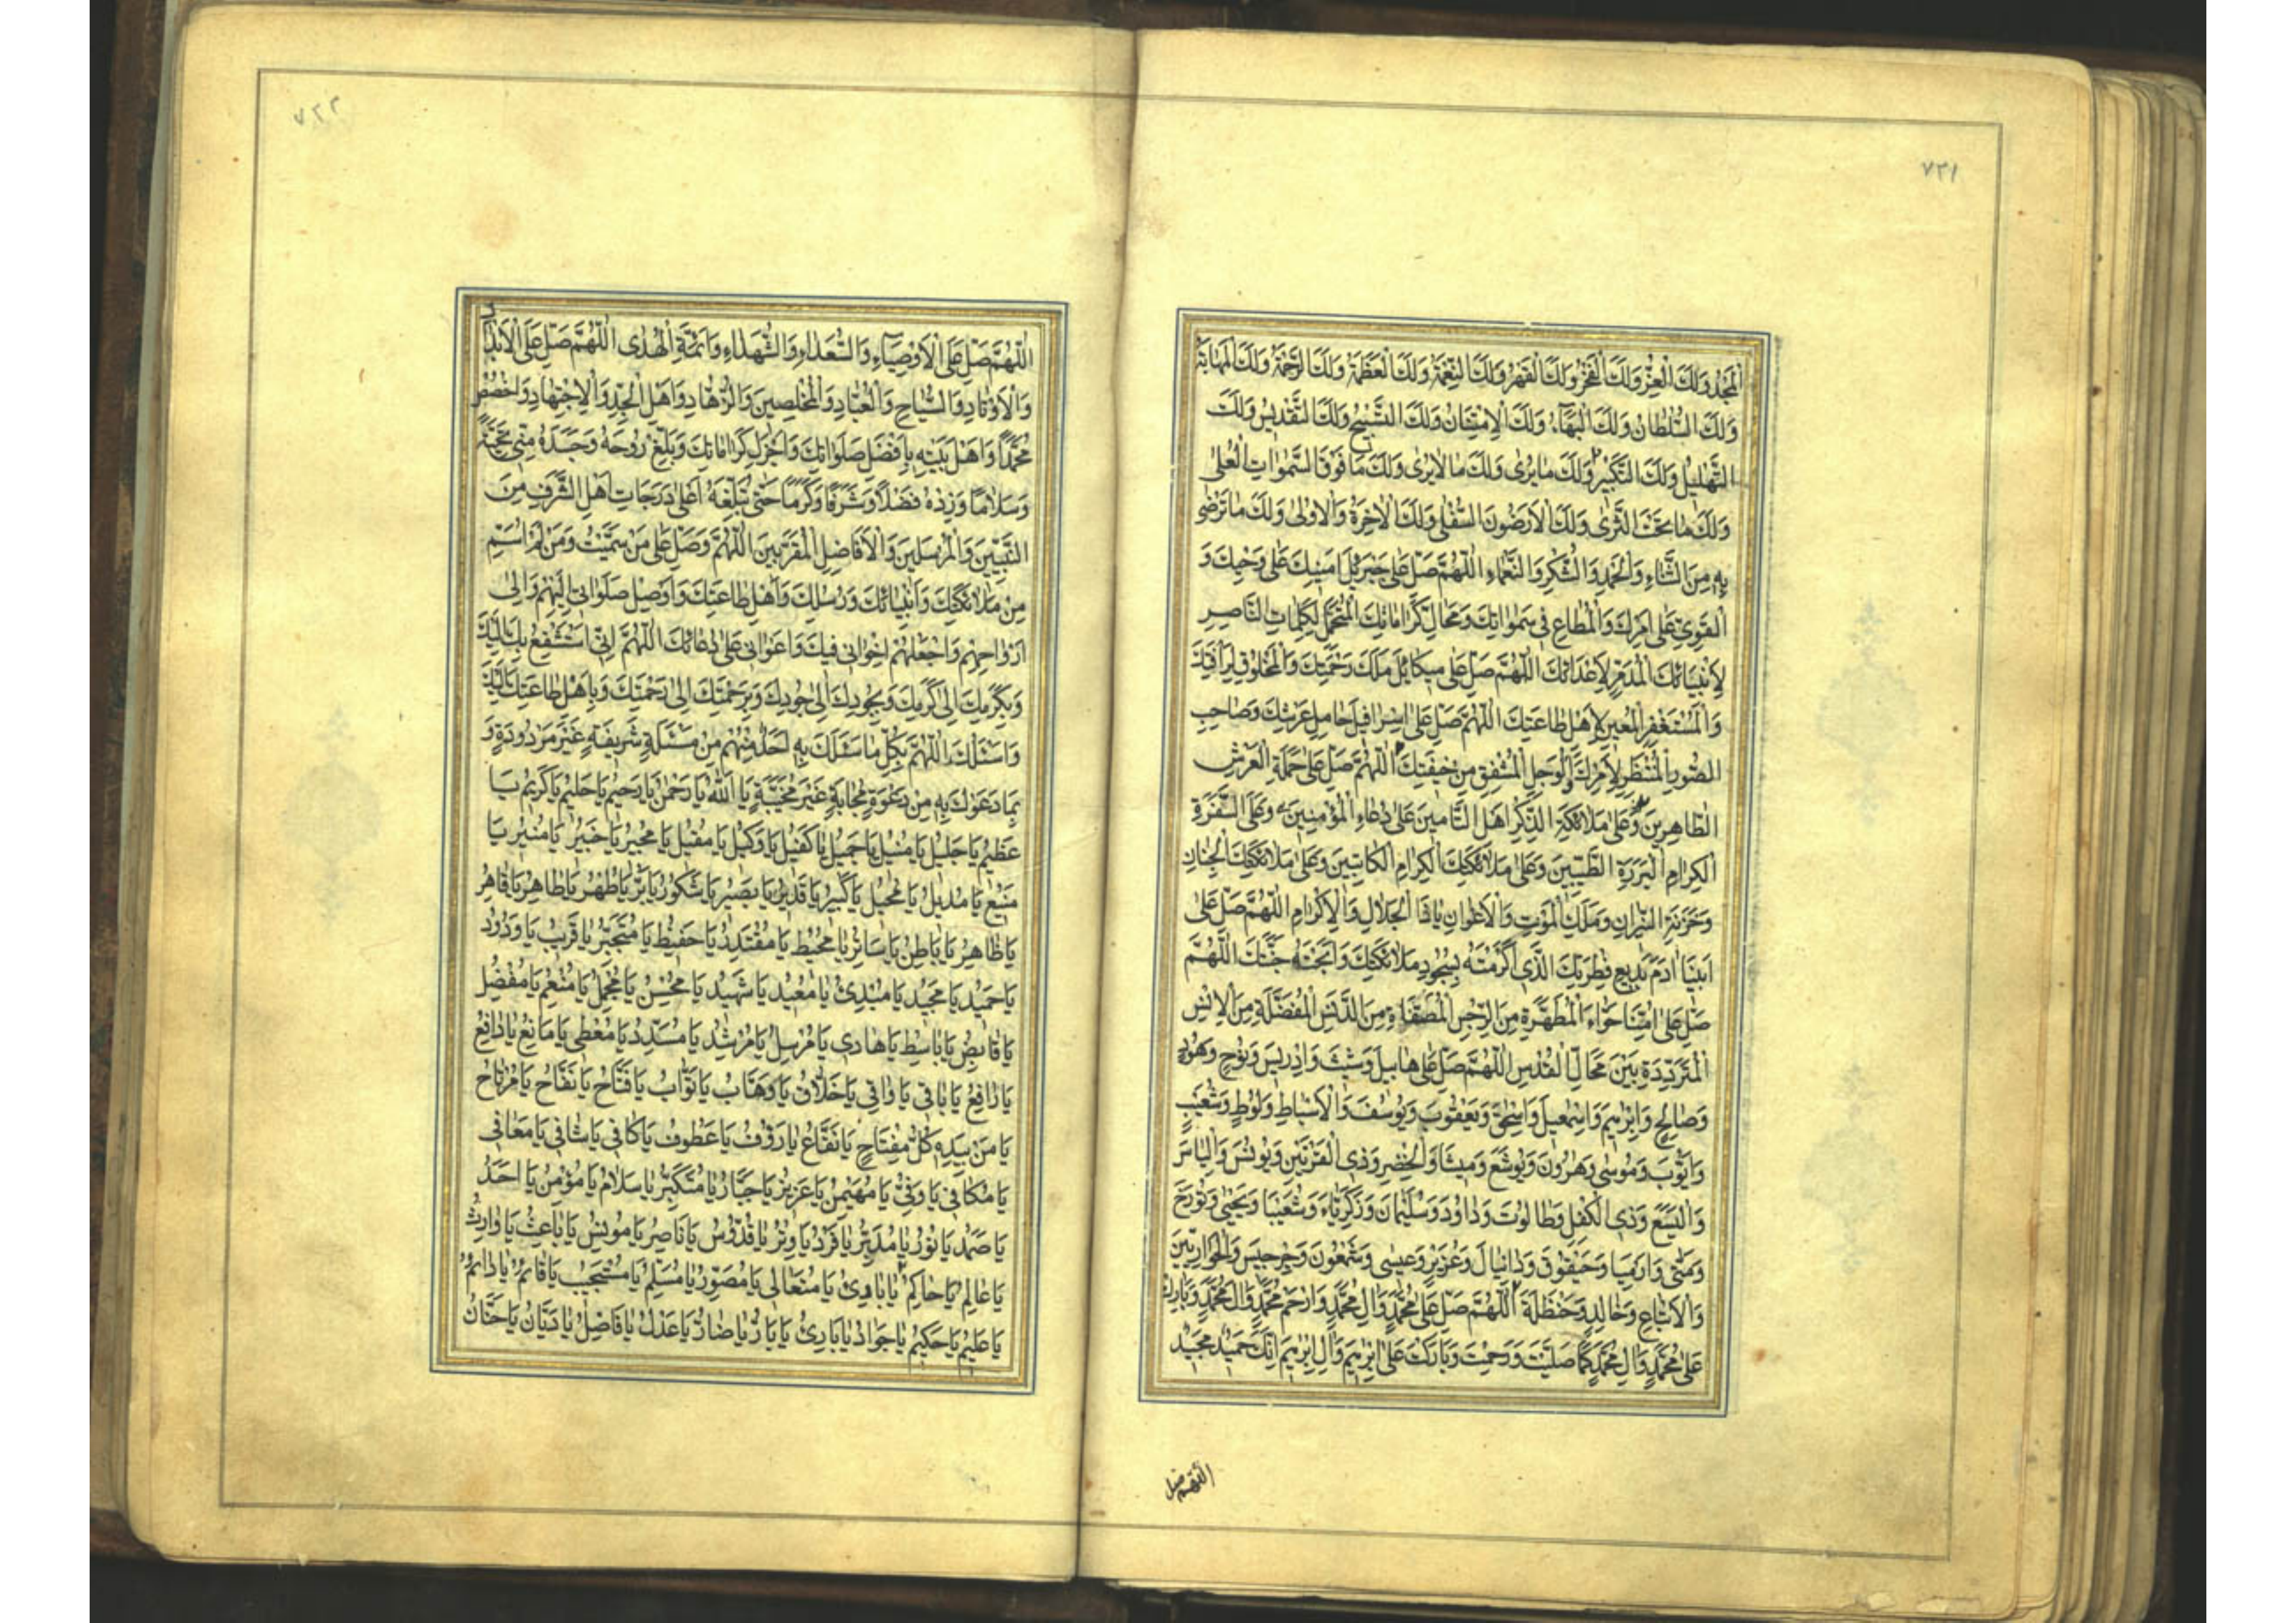 ٧٣١
الْمَجْدُ وَلَكَ الْعِزُّ وَلَكَ الْفَخْرُ وَلَكَ الْقَهْرُ وَلَكَ النِّعْمَةُ وَلَكَ الْعَظَمَةُ وَلَكَ الرَّحْمَةُ وَلَكَ الْمَهَابَةُ
وَلَكَ السُّلْطَانُ وَلَكَ الْبَهَآءُ وَلَكَ الْاِمْتِنَانُ وَلَكَ التَّسْبِيحُ وَلَكَ التَّقْدِيسُ وَلَكَ
التَّهْلِيلُ وَلَكَ التَّكْبِيرُ وَلَكَ مَا يُرٰى وَلَكَ مَا لَا يُرٰى وَلَكَ مَا فَوْقَ السَّمٰوَاتِ الْعُلٰى
وَلَكَ مَا تَحْتَ الثَّرٰى وَلَكَ الْاَرَضُونَ السُّفْلٰى وَلَكَ الْاٰخِرَةُ وَالْاُولٰى وَلَكَ مَا تَرْضٰى
بِهِ مِنَ الثَّنَاءِ وَالْحَمْدِ وَالشُّكْرِ وَالنَّعْمَاءِ اَللّٰهُمَّ صَلِّ عَلٰى جَبْرَئِيلَ اَمِينِكَ عَلٰى وَحْيِكَ وَ
الْقَوِيِّ عَلٰى اَمْرِكَ وَالْمُطَاعِ فِي سَمٰوَاتِكَ وَمَحَالِّ كَرَامَاتِكَ الْمُتَحَمِّلِ لِكَلِمَاتِكَ النَّاصِرِ
لِاَنْبِيَائِكَ الْمُدَمِّرِ لِاَعْدَائِكَ اَللّٰهُمَّ صَلِّ عَلٰى مِيكَائِيلَ مَلَكِ رَحْمَتِكَ وَالْمَخْلُوقِ لِرَأْفَتِكَ
وَالْمُسْتَغْفِرِ الْمُعِينِ لِاَهْلِ طَاعَتِكَ اَللّٰهُمَّ صَلِّ عَلٰى اِسْرَافِيلَ حَامِلِ عَرْشِكَ وَصَاحِبِ
الصُّورِ الْمُنْتَظِرِ لِاَمْرِكَ وَالْوَجِلِ الْمُشْفِقِ مِنْ خِيفَتِكَ اَللّٰهُمَّ صَلِّ عَلٰى حَمَلَةِ الْعَرْشِ
الطَّاهِرِينَ وَعَلٰى مَلَائِكَةِ الذِّكْرِ اَهْلِ التَّأْمِينَ عَلٰى دُعَاءِ الْمُؤْمِنِينَ وَعَلَى السَّفَرَةِ
الْكِرَامِ الْبَرَرَةِ الطَّيِّبِينَ وَعَلٰى مَلَائِكَتِكَ الْكِرَامِ الْكَاتِبِينَ وَعَلٰى مَلَائِكَتِكَ الْجِنَانِ
وَخَزَنَةِ النِّيرَانِ وَمَلَكِ الْمَوْتِ وَالْاَعْوَانِ يَا ذَا الْجَلَالِ وَالْاِكْرَامِ اَللّٰهُمَّ صَلِّ عَلٰى
اَبِينَا اٰدَمَ بَدِيعِ فِطْرَتِكَ الَّذِي اَكْرَمْتَهُ بِسُجُودِ مَلَائِكَتِكَ وَاَبَحْتَهُ جَنَّتَكَ اَللّٰهُمَّ
صَلِّ عَلٰى اُمِّنَا حَوَّاءَ الْمُطَهَّرَةِ مِنَ الرِّجْسِ الْمُصَفَّاةِ مِنَ الدَّنَسِ الْمُفَضَّلَةِ مِنَ الْاِنْسِ
الْمُتَرَدِّدَةِ بَيْنَ مَحَالِّ الْقُدْسِ اَللّٰهُمَّ صَلِّ عَلٰى هَابِيلَ وَشِيثَ وَاِدْرِيسَ وَنُوحٍ وَهُودٍ
وَصَالِحٍ وَاِبْرٰهِيمَ وَاِسْمٰعِيلَ وَاِسْحٰقَ وَيَعْقُوبَ وَيُوسُفَ وَالْاَسْبَاطِ وَلُوطٍ وَشُعَيْبٍ
وَاَيُّوبَ وَمُوسٰى وَهٰرُونَ وَيُوشَعَ وَمِيشَا وَالْخِضْرِ وَذِي الْقَرْنَيْنِ وَيُونُسَ وَاِلْيَاسَ
وَالْيَسَعَ وَذِي الْكِفْلِ وَطَالُوتَ وَدَاوُدَ وَسُلَيْمَانَ وَزَكَرِيَّاءَ وَشَعْيَا وَيَحْيٰى وَتُورَخَ
وَمَتّٰى وَاِرْمِيَا وَحَيْقُوقَ وَدَانِيَالَ وَعُزَيْرٍ وَعِيسٰى وَشَمْعُونَ وَجِرْجِيسَ وَالْحَوَارِيِّينَ
وَالْاَتْبَاعِ وَخَالِدٍ وَحَنْظَلَةَ اَللّٰهُمَّ صَلِّ عَلٰى مُحَمَّدٍ وَاٰلِ مُحَمَّدٍ وَارْحَمْ مُحَمَّدًا وَاٰلَ مُحَمَّدٍ وَبَارِكْ
عَلٰى مُحَمَّدٍ وَاٰلِ مُحَمَّدٍ كَمَا صَلَّيْتَ وَرَحِمْتَ وَبَارَكْتَ عَلٰى اِبْرٰهِيمَ وَاٰلِ اِبْرٰهِيمَ اِنَّكَ حَمِيدٌ مَجِيدٌ
اللّٰهم صل
٧٣٢
اَللّٰهُمَّ صَلِّ عَلَى الْاَوْصِيَآءِ وَالسُّعَدَاءِ وَالشُّهَدَاءِ وَاَئِمَّةِ الْهُدٰى اَللّٰهُمَّ صَلِّ عَلَى الْاَبْدَالِ
وَالْاَوْتَادِ وَالسُّيَّاحِ وَالْعُبَّادِ وَالْمُخْلِصِينَ وَالزُّهَّادِ وَاَهْلِ الْجِدِّ وَالْاِجْتِهَادِ وَاخْصُصْ
مُحَمَّدًا وَاَهْلَ بَيْتِهِ بِاَفْضَلِ صَلَوَاتِكَ وَاَجْزَلِ كَرَامَاتِكَ وَبَلِّغْ رُوحَهُ وَجَسَدَهُ مِنِّي تَحِيَّةً
وَسَلَامًا وَزِدْهُ فَضْلًا وَشَرَفًا وَكَرَمًا حَتّٰى تُبَلِّغَهُ اَعْلٰى دَرَجَاتِ اَهْلِ الشَّرَفِ مِنَ
النَّبِيِّينَ وَالْمُرْسَلِينَ وَالْاَفَاضِلِ الْمُقَرَّبِينَ اَللّٰهُمَّ وَصَلِّ عَلٰى مَنْ سَمَّيْتُ وَمَنْ لَمْ اُسَمِّ
مِنْ مَلَائِكَتِكَ وَاَنْبِيَائِكَ وَرُسُلِكَ وَاَهْلِ طَاعَتِكَ وَاَوْصِلْ صَلَوَاتِي اِلَيْهِمْ وَاِلٰى
اَرْوَاحِهِمْ وَاجْعَلْهُمْ اِخْوَانِي فِيكَ وَاَعْوَانِي عَلٰى دُعَائِكَ اَللّٰهُمَّ اِنِّي اَسْتَشْفِعُ بِكَ اِلَيْكَ
وَبِكَرَمِكَ اِلٰى كَرَمِكَ وَبِجُودِكَ اِلٰى جُودِكَ وَبِرَحْمَتِكَ اِلٰى رَحْمَتِكَ وَبِاَهْلِ طَاعَتِكَ اِلَيْكَ
وَاَسْئَلُكَ اَللّٰهُمَّ بِكُلِّ مَا سَئَلَكَ بِهِ اَحَدٌ مِنْهُمْ مِنْ مَسْئَلَةٍ شَرِيفَةٍ غَيْرِ مَرْدُودَةٍ وَ
بِمَا دَعَوْكَ بِهِ مِنْ دَعْوَةٍ مُجَابَةٍ غَيْرِ مُخَيَّبَةٍ يَا اَللّٰهُ يَا رَحْمٰنُ يَا رَحِيمُ يَا حَلِيمُ يَا كَرِيمُ يَا
عَظِيمُ يَا جَلِيلُ يَا مُنِيلُ يَا جَمِيلُ يَا كَفِيلُ يَا وَكِيلُ يَا مُقِيلُ يَا مُجِيرُ يَا خَبِيرُ يَا مُنِيرُ يَا
مَنِيعُ يَا مُدِيلُ يَا مُحِيلُ يَا كَبِيرُ يَا قَدِيرُ يَا بَصِيرُ يَا شَكُورُ يَا بَرُّ يَا طُهْرُ يَا طَاهِرُ يَا قَاهِرُ
يَا ظَاهِرُ يَا بَاطِنُ يَا سَاتِرُ يَا مُحِيطُ يَا مُقْتَدِرُ يَا حَفِيظُ يَا مُتَجَبِّرُ يَا قَرِيبُ يَا وَدُودُ
يَا حَمِيدُ يَا مَجِيدُ يَا مُبْدِئُ يَا مُعِيدُ يَا شَهِيدُ يَا مُحْسِنُ يَا مُجْمِلُ يَا مُنْعِمُ يَا مُفْضِلُ
يَا قَابِضُ يَا بَاسِطُ يَا هَادِي يَا مُرْسِلُ يَا مُرْشِدُ يَا مُسَدِّدُ يَا مُعْطِي يَا مَانِعُ يَا دَافِعُ
يَا رَافِعُ يَا بَاقِي يَا وَاقِي يَا خَلَّاقُ يَا وَهَّابُ يَا تَوَّابُ يَا فَتَّاحُ يَا نَفَّاحُ يَا مُرْتَاحُ
يَا مَنْ بِيَدِهِ كُلُّ مِفْتَاحٍ يَا نَفَّاعُ يَا رَؤُفُ يَا عَطُوفُ يَا كَافِي يَا شَافِي يَا مُعَافِي
يَا مُكَافِي يَا وَفِيُّ يَا مُهَيْمِنُ يَا عَزِيزُ يَا جَبَّارُ يَا مُتَكَبِّرُ يَا سَلَامُ يَا مُؤْمِنُ يَا اَحَدُ
يَا صَمَدُ يَا نُورُ يَا مُدَبِّرُ يَا فَرْدُ يَا وِتْرُ يَا قُدُّوسُ يَا نَاصِرُ يَا مُونِسُ يَا بَاعِثُ يَا وَارِثُ
يَا عَالِمُ يَا حَاكِمُ يَا بَادِئُ يَا مُتَعَالِي يَا مُصَوِّرُ يَا مُسَلِّمُ يَا مُسْتَجِيبُ يَا قَائِمُ يَا دَائِمُ
يَا عَلِيمُ يَا حَكِيمُ يَا جَوَادُ يَا بَارِئُ يَا بَارُّ يَا ضَارُّ يَا عَدْلُ يَا فَاضِلُ يَا دَيَّانُ يَا حَنَّانُ